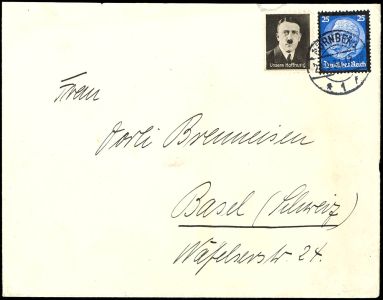 Unsere Hoffnung
25 25
Deutsches Reich
NÜRNBERG
* 1 f
Frau
Dorli Brenneisen
Basel (Schweiz)
Wafelserstr 24.